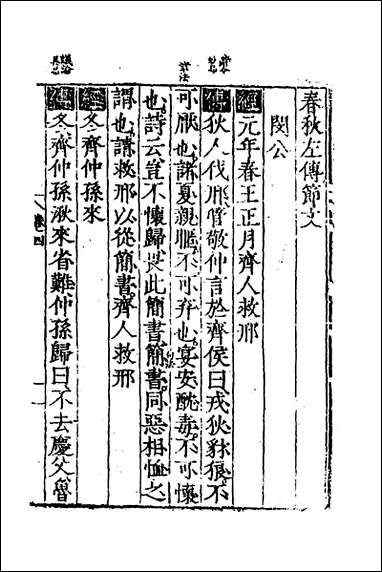 春秋左傳節文
閔公
經 元年春王正月齊人救邢
傳 狄人伐邢管敬仲言於齊侯曰戎狄豺狼不
可厭也諸夏親暱不可棄也宴安酖毒不可懷
也詩云豈不懷歸畏此簡書簡書同惡相恤之
謂也請救邢以從簡書齊人救邢
經 冬齊仲孫來
傳 冬齊仲孫湫來省難仲孫歸曰不去慶父魯
卷四